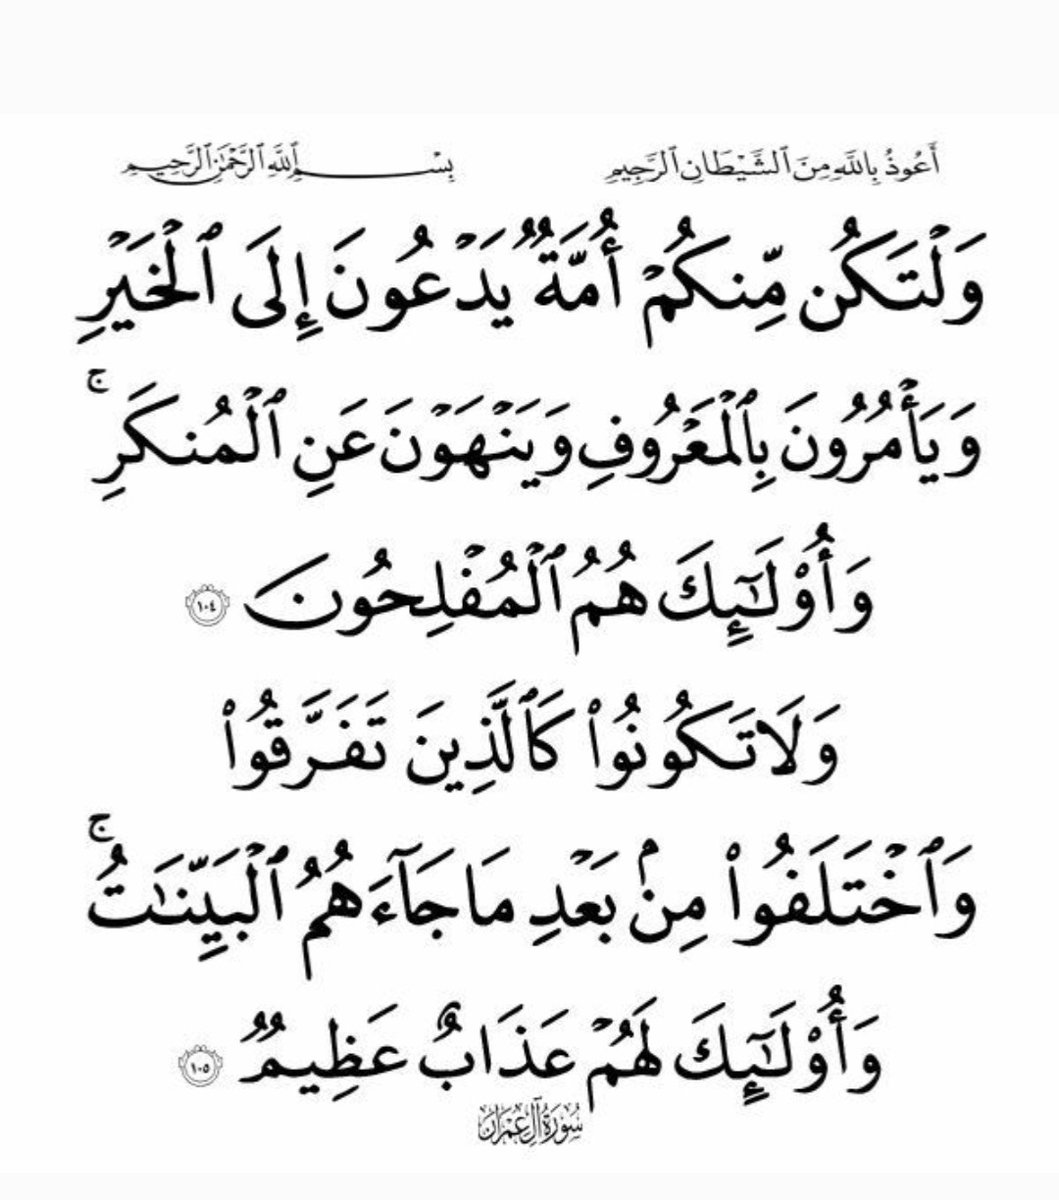 أَعُوذُ بِٱللَّهِ مِنَ ٱلشَّيْطَانِ ٱلرَّجِيمِ بِسْمِ ٱللَّهِ ٱلرَّحْمَٰنِ ٱلرَّحِيمِ
وَلْتَكُن مِّنكُمْ أُمَّةٌ يَدْعُونَ إِلَى ٱلْخَيْرِ
وَيَأْمُرُونَ بِٱلْمَعْرُوفِ وَيَنْهَوْنَ عَنِ ٱلْمُنكَرِ ۚ
وَأُو۟لَٰٓئِكَ هُمُ ٱلْمُفْلِحُونَ ١٠٤
وَلَا تَكُونُوا۟ كَٱلَّذِينَ تَفَرَّقُوا۟
وَٱخْتَلَفُوا۟ مِنۢ بَعْدِ مَا جَآءَهُمُ ٱلْبَيِّنَٰتُ ۚ
وَأُو۟لَٰٓئِكَ لَهُمْ عَذَابٌ عَظِيمٌ ١٠٥
سُورَةُ آلِ عِمْرَانَ